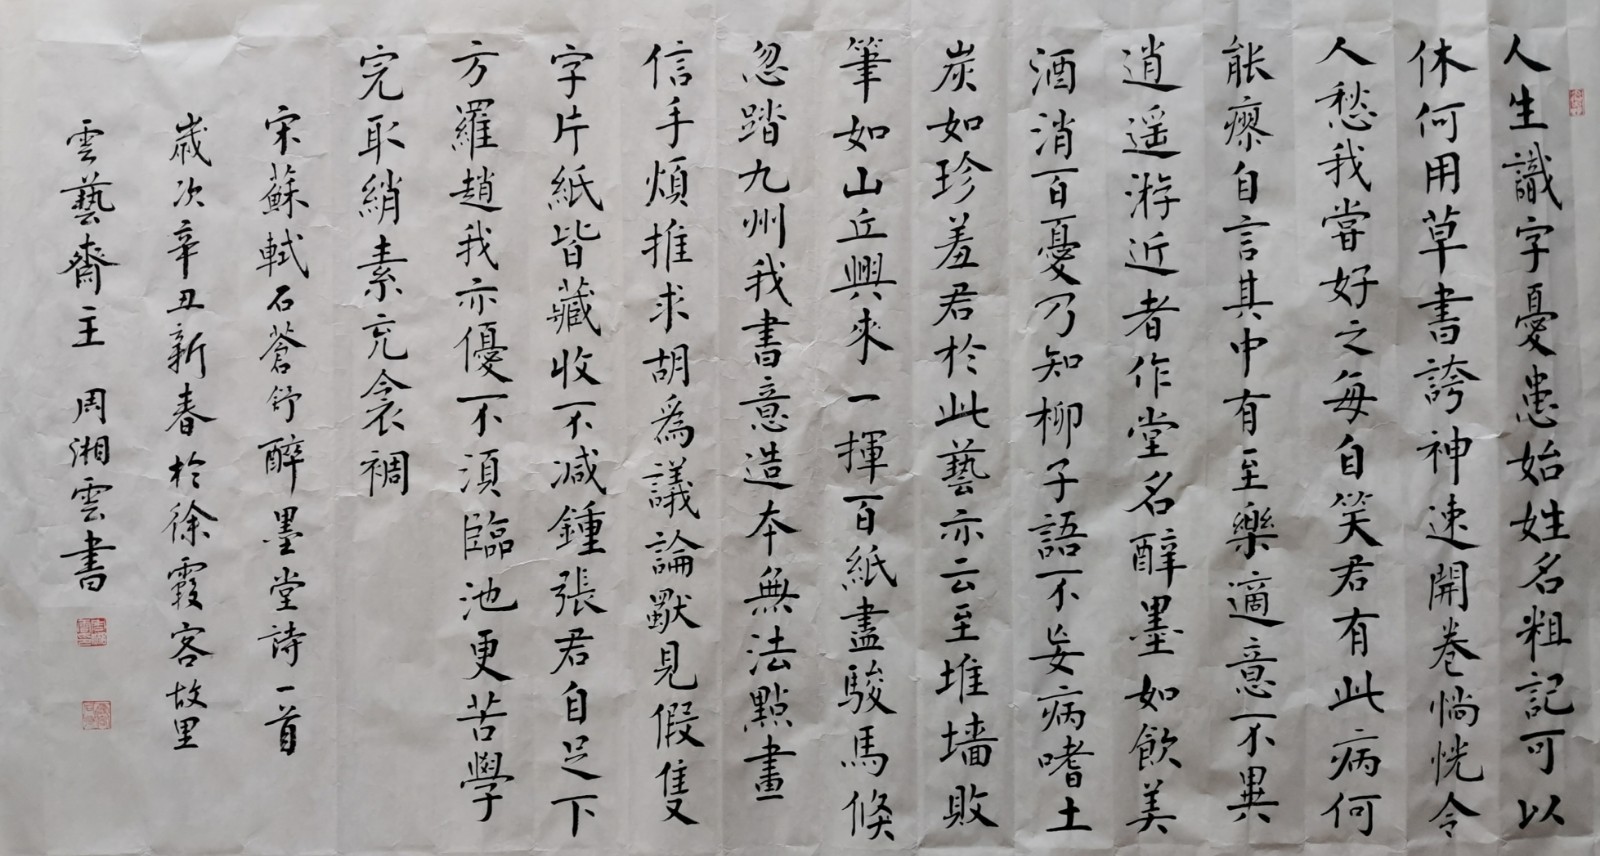 人生識字憂患始姓名粗記可以
休何用草書誇神速開卷惝恍令
人愁我嘗好之每自笑君有此病何
能瘳自言其中有至樂適意不異
逍遥游近者作堂名醉墨如飲美
酒消百憂乃知柳子語不妄病嗜土
炭如珍羞君於此藝亦云至堆墻敗
筆如山丘興來一揮百紙盡駿馬倏
忽踏九州我書意造本無法點畫
信手煩推求胡爲議論獸見假隻
字片紙皆藏收不减鍾張君自足下
方羅趙我亦優不須臨池更苦學
完取綃素充衾裯
宋蘇軾石蒼舒醉墨堂詩一首
歲次辛丑新春於徐霞客故里
雲藝齋主 周湘雲書